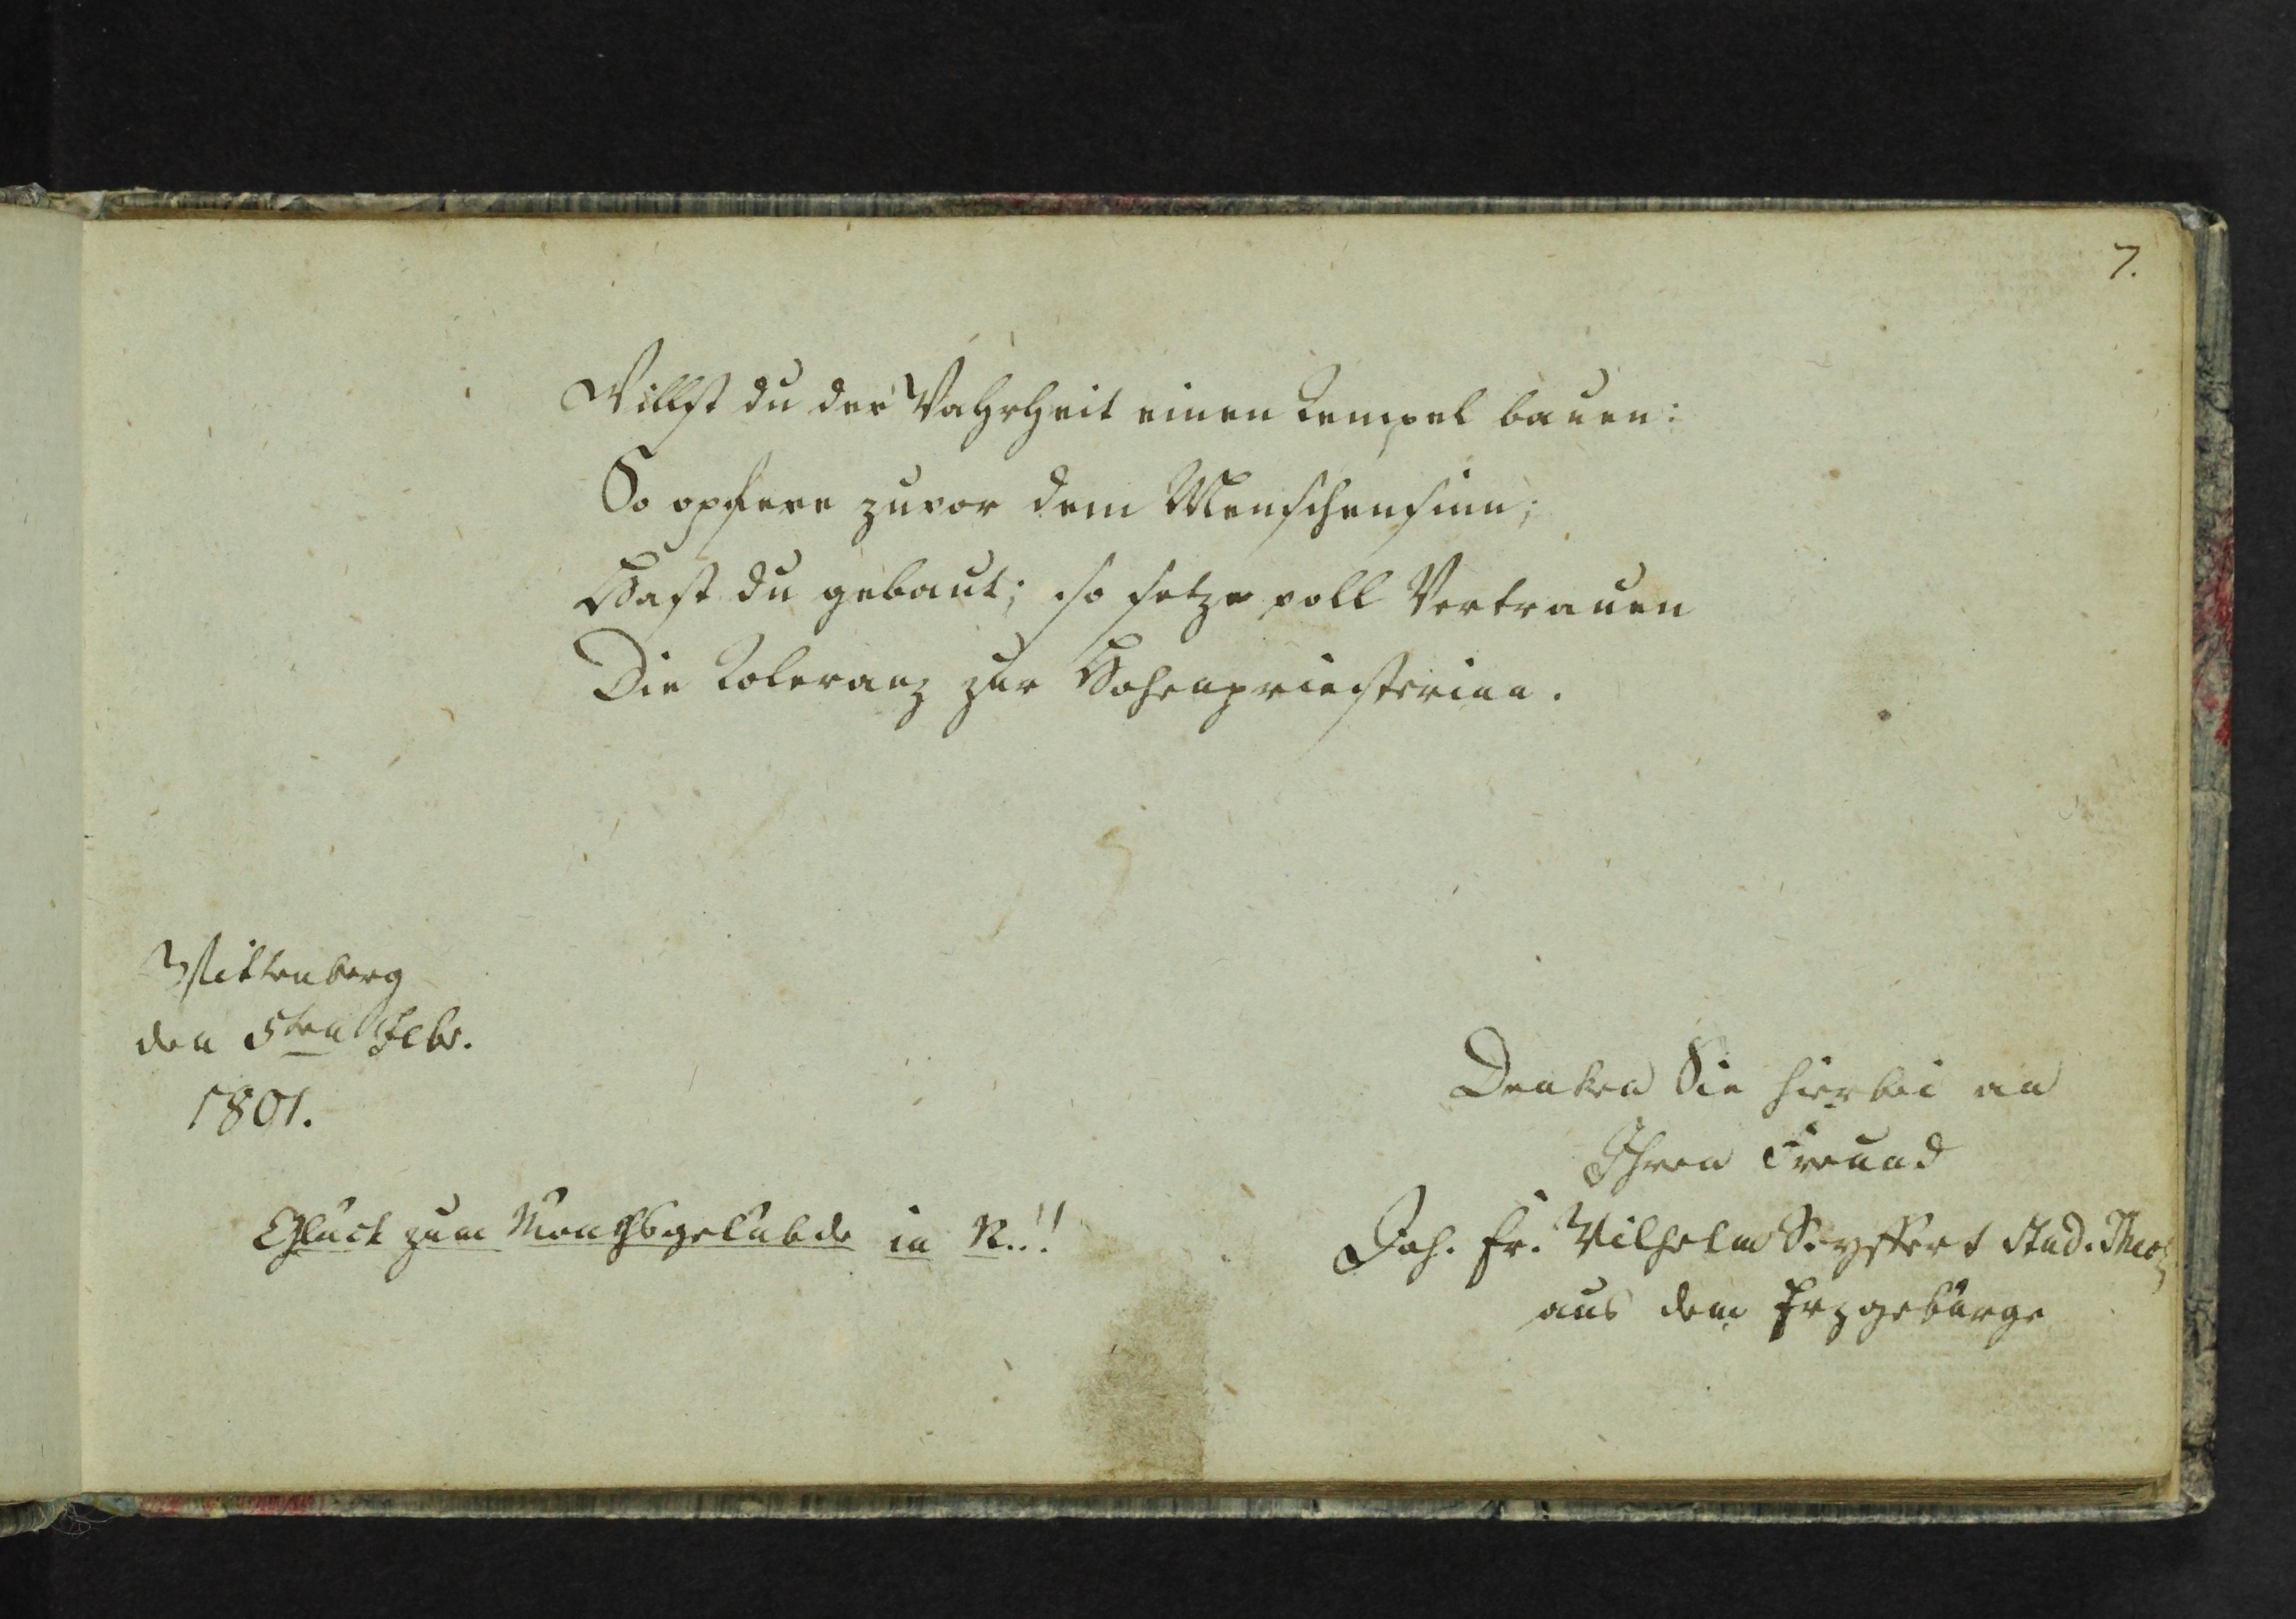 7.
Willst du der Wahrheit einen Tempel bauen:
So opfere zuvor dem Menschensinn;
Hast du gebaut; so setze voll Vertrauen
Die Toleranz zur Hohenpriesterinn.
Wittenberg
den 5ten Febr.
1801.
Denken Sie hierbei an
Ihren Freund
Glück zum Mönchsgelübde in R..!!
Joh. Fr. Wilhelm Seyffert Stud. Theol
aus dem Erzgebürge